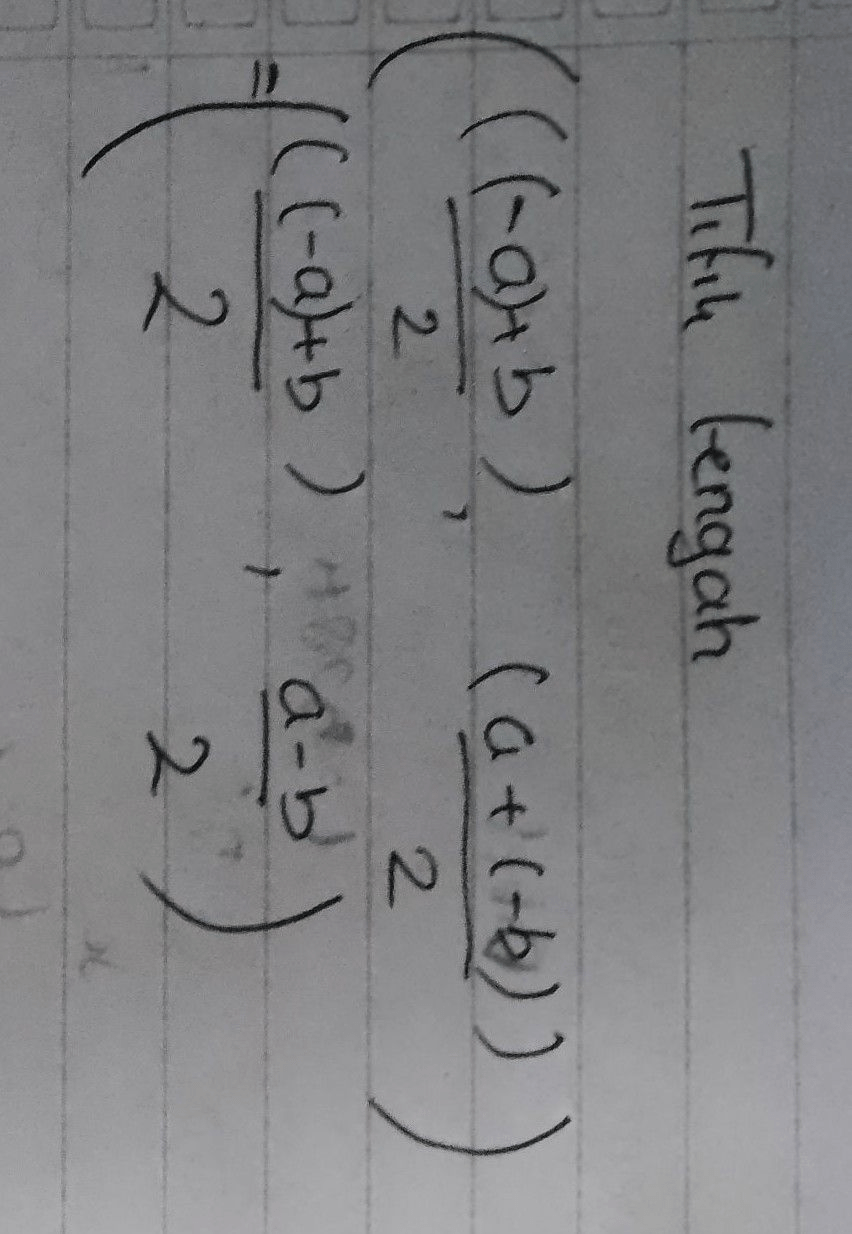 Titik tengah
( ((-a)+b)/2 , (a+(-b))/2 )
= ( ((-a)+b)/2 , a-b/2 )